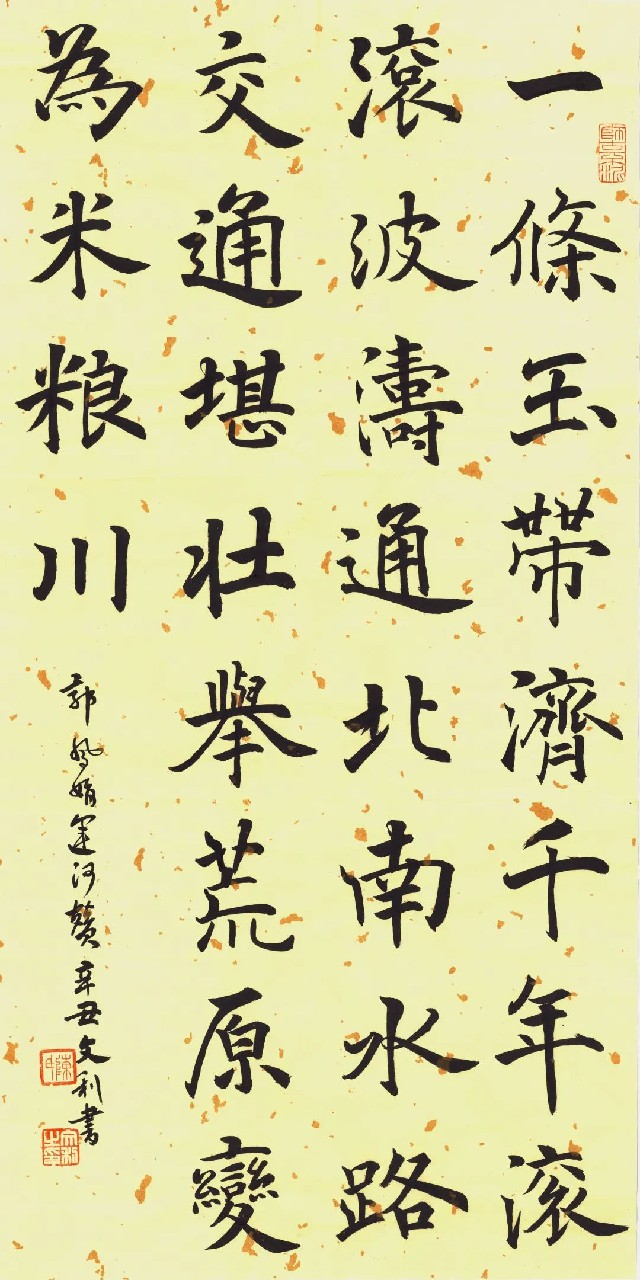 一條玉帶濟千年滚
滾波濤通北南水路
交通堪壮舉荒原變
為米粮川
郭鳳娟運河贊辛丑文利書